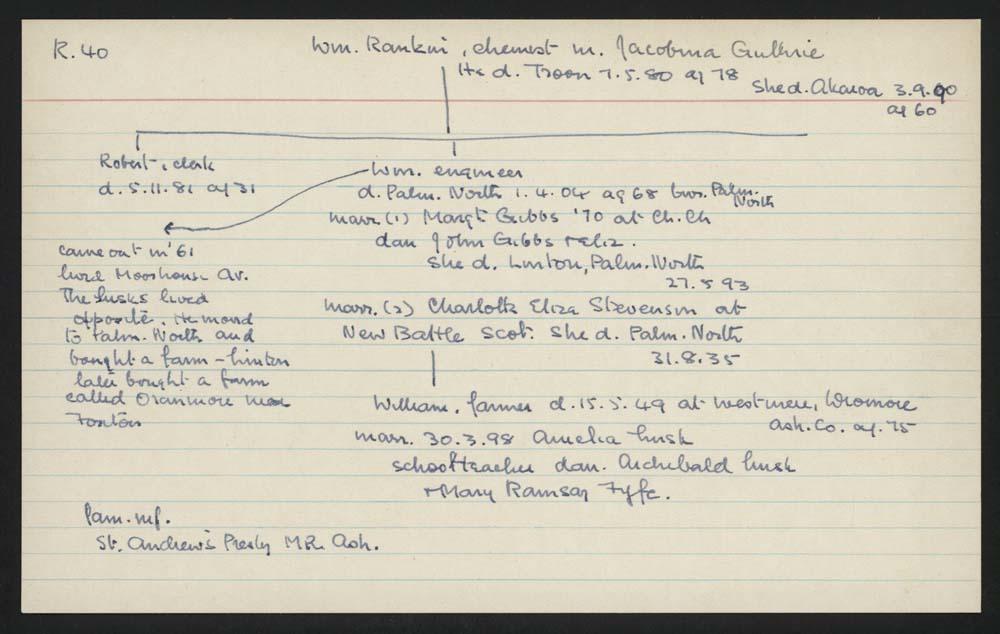 R. 40
Wm. Rankin, chemist m. Jacobina Guthrie
He d. Troon 7.5.80 ag 78
She d. Akaroa 3.9.90
ag 60
Robert, clerk
d. 5.11.81 ag 31
Wm. engineer
d. Palm. North 1.4.04 ag 68 bur. Palm. North
marr (1) Margt Gibbs '70 at Ch.Ch
dau John Gibbs + Eliz.
She d. Linton, Palm. North
27.5.93
marr. (2) Charlotte Eliza Stevenson at
New Battle Scot. She d. Palm. North
31.8.35
came out in '61
lived Moorhouse Av.
The Lusks lived
opposite. He moved
to Palm. North and
bought a farm - Linton
later bought a farm
called Oranmore near
Foxton
William, farmer d. 15.5.49 at Westmere, Dromore
Ash. Co. ag. 75
marr. 30.3.98 Amelia Lusk
schoolteacher dau. Archibald Lusk
+ Mary Ramsay Fyfe.
fam. inf.
St. Andrew's Presby MR. Ash.